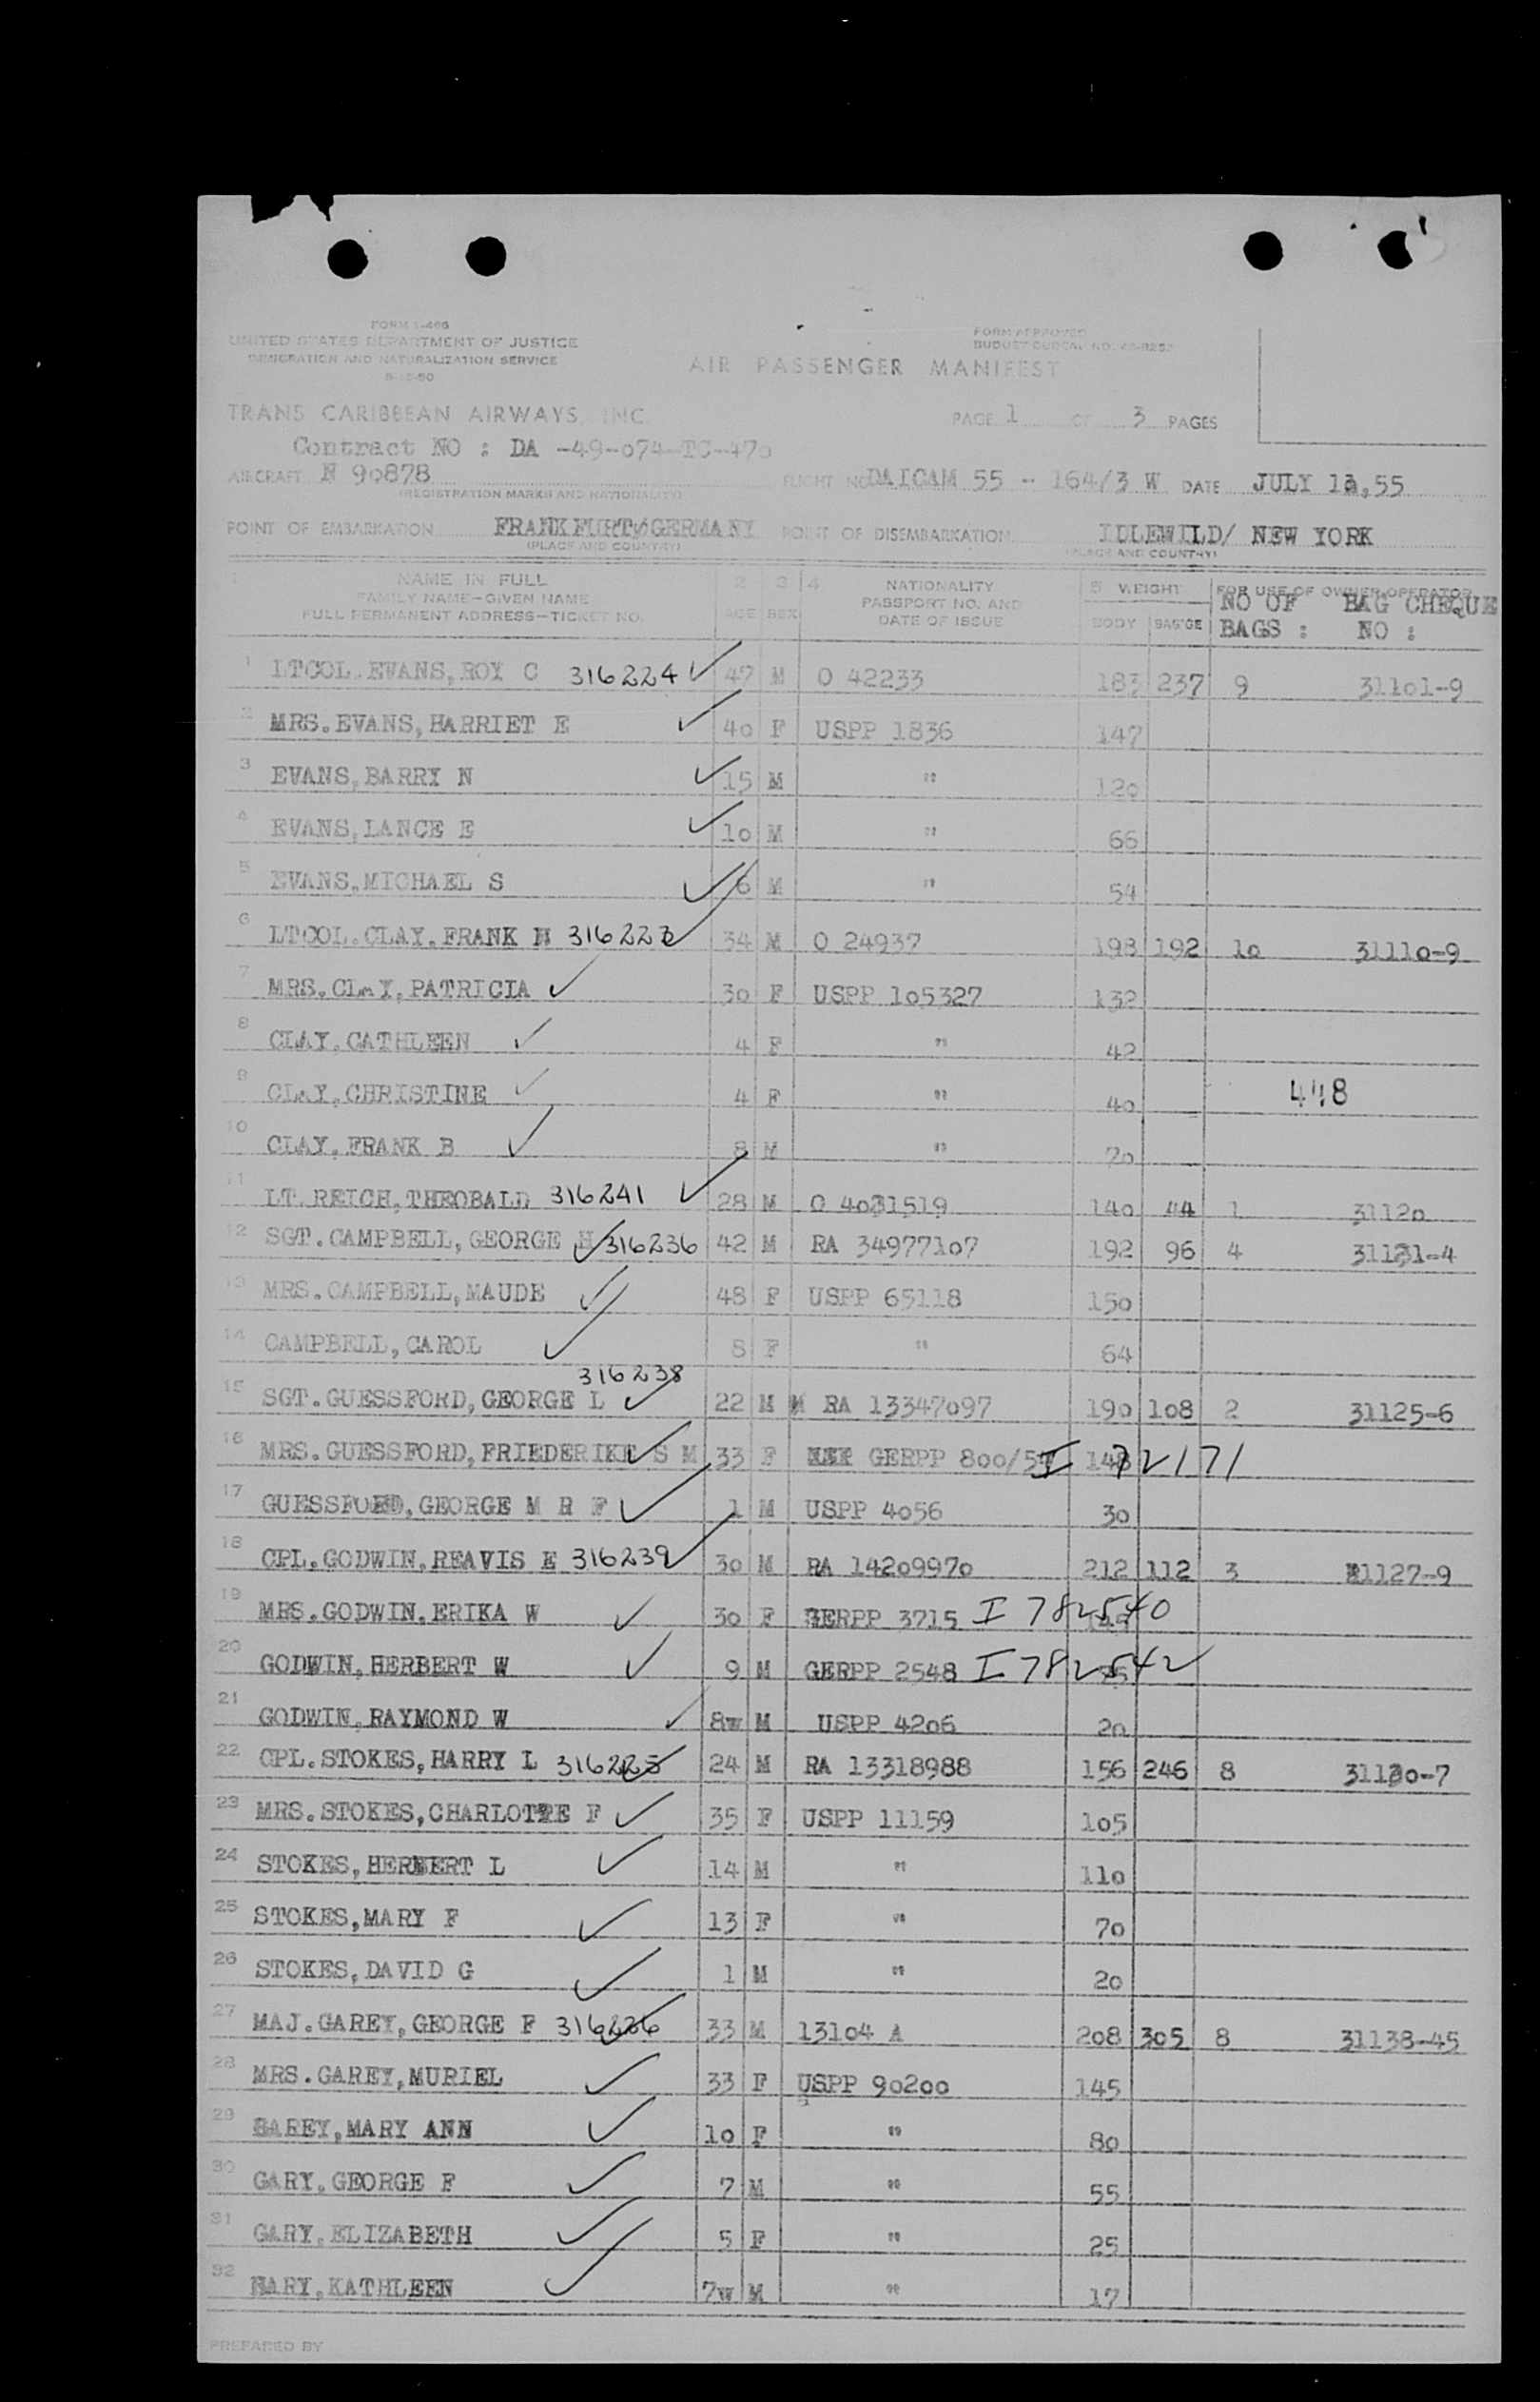 FORM I-466
UNITED STATES DEPARTMENT OF JUSTICE
IMMIGRATION AND NATURALIZATION SERVICE
FORM APPROVED
BUDGET BUREAU NO.
AIR PASSENGER MANIFEST
TRANS CARIBBEAN AIRWAYS, INC.
PAGE 1 OF 3 PAGES
Contract NO : DA -49-074-TC-470
AIRCRAFT N 90878 FLIGHT NO DAICAM 55 - 164/3 W DATE JULY 55
(REGISTRATION MARKS AND NATIONALITY)
POINT OF EMBARKATION FRANKFURT/GERMANY POINT OF DISEMBARKATION IDLEWILD/ NEW YORK
(PLACE AND COUNTRY) (PLACE AND COUNTRY)
1 NAME IN FULL 2 3 4 NATIONALITY 5 WEIGHT FOR USE OF OWNER-OPERATOR
FAMILY NAME-GIVEN NAME PASSPORT NO. AND NO OF BAG CHEQUE
FULL PERMANENT ADDRESS-TICKET NO. AGE SEX DATE OF ISSUE BODY BAG'GE BAGS : NO :
1 LTCOL.EVANS,ROY C 316224 47 M O 42233 183 237 9 31101-9
2 MRS.EVANS,HARRIET E 40 F USPP 1836 147
3 EVANS,BARRY N 15 M " 120
4 EVANS,LANCE E 10 M " 66
5 EVANS,MICHAEL S 6 M " 54
6 LTCOL.CLAY,FRANK 34 M O 24937 198 192 10 31110-9
7 MRS.CLAY,PATRICIA 30 F USPP 105327 132
8 CLAY,CATHLEEN 4 F " 42
9 CLAY,CHRISTINE 4 F " 40 448
10 CLAY,FRANK B 8 M " 70
11 LT.REICH,THEOBALD 316241 28 M O 4031519 140 44 1 31120
12 SGT.CAMPBELL,GEORGE H 316236 42 M RA 34977107 192 96 4 31121-4
13 MRS.CAMPBELL,MAUDE 48 F USPP 65118 150
14 CAMPBELL,CAROL 8 F " 64
316238
15 SGT.GUESSFORD,GEORGE L 22 M RA 13347097 190 108 2 31125-6
16 MRS.GUESSFORD,FRIEDERIKE S M 33 F GERPP 800/5 I 72171
17 GUESSFORD,GEORGE M R F 1 M USPP 4056 30
18 CPL.GODWIN,REAVIS E 316239 30 M RA 14209970 212 112 3 31127-9
19 MRS.GODWIN,ERIKA W 30 F GERPP 3715 I 782540
20 GODWIN,HERBERT W 9 M GERPP 2548 I 782542
21 GODWIN,RAYMOND W 8w M USPP 4206 20
22 CPL.STOKES,HARRY L 316225 24 M RA 13318988 156 246 8 31130-7
23 MRS.STOKES,CHARLOTTE F 35 F USPP 11159 105
24 STOKES,HERBERT L 14 M " 110
25 STOKES,MARY F 13 F " 70
26 STOKES,DAVID G 1 M " 20
27 MAJ.GAREY,GEORGE F 316226 33 M 13104 A 208 305 8 31138-45
28 MRS.GAREY,MURIEL 33 F USPP 90200 145
29 GAREY,MARY ANN 10 F " 80
30 GARY,GEORGE F 7 M " 55
31 GARY,ELIZABETH 5 F " 25
32 GARY,KATHLEEN 7w M " 17
PREPARED BY